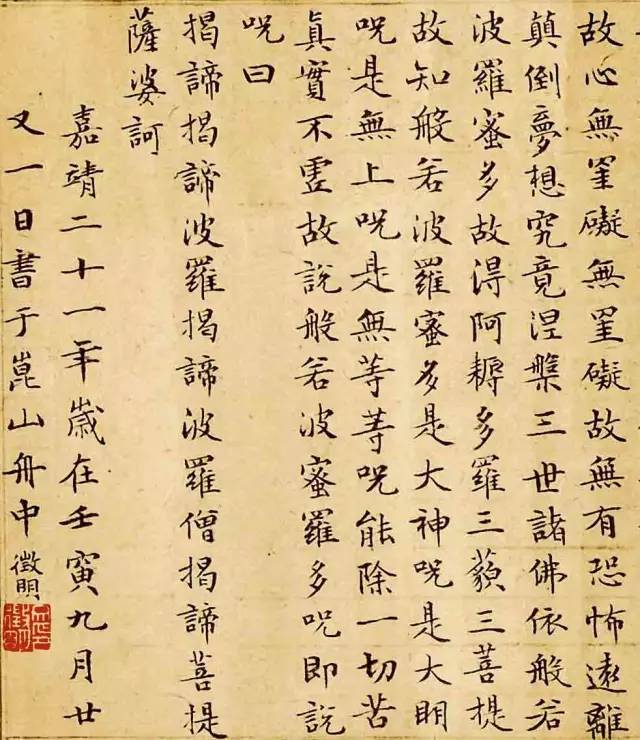 故心無罣礙無罣礙故無有恐怖遠離
顛倒夢想究竟涅槃三世諸佛依般若
波羅蜜多故得阿耨多羅三藐三菩提
故知般若波羅蜜多是大神呪是大明
呪是無上呪是無等等呪能除一切苦
眞實不虛故說般若波蜜羅多呪即說
呪曰
揭諦揭諦波羅揭諦波羅僧揭諦菩提
薩婆訶
嘉靖二十一年歲在壬寅九月廿
又一日書于崑山舟中徵明